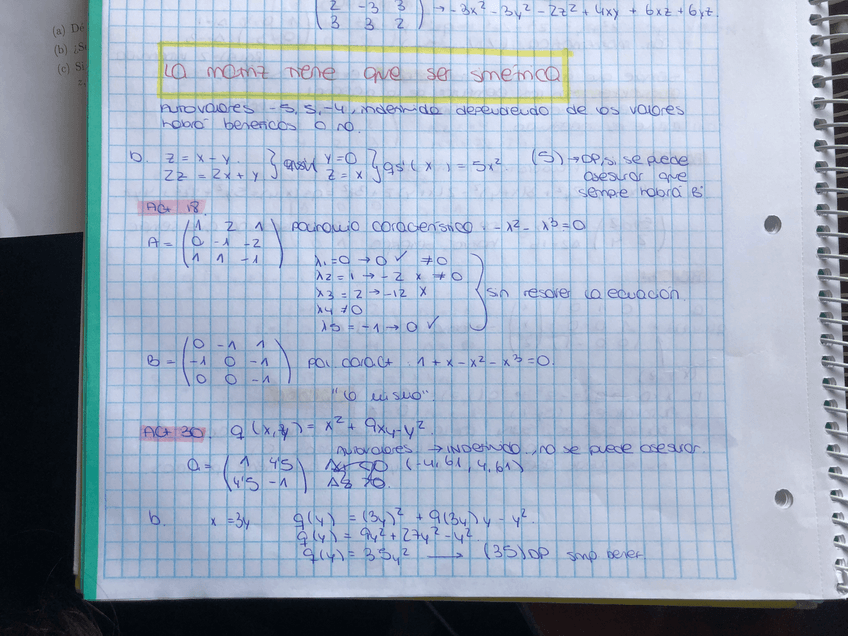 (a) De
(b) ¿Se
(c) Si
2 -3 3
3 3 2 → -3x² - 3y² - 2z² + 4xy + 6xz + 6yz.
La matriz tiene que ser simétrica
Autovalores -5, 5, -4, indefinida dependiendo de los valores
habrá beneficios o no.
b. z = x - y
2z = 2x + y } y = 0
z = x } (x) = 5x². (5) → DP, si se puede
asegurar que
siempre habrá B
Act 18.
A = ( 1 2 1
0 -1 -2
1 1 -1 ) polinomio característico -λ² - λ³ = 0
λ1 = 0 → 0 ✓ ≠0
λ2 = 1 → -2 x ≠0
λ3 = 2 → -12 x } sin resolver la ecuación.
λ4 ≠ 0
λ5 = -1 → 0 ✓
B = ( 0 -1 1
-1 0 -1
0 0 -1 ) pol. caract. 1 + x - x² - x³ = 0.
"lo mismo".
Act 30. q(x,y) = x² + 9xy - y²
autovalores → INDEFINIDO, no se puede asegurar
a = ( 1 4'5
4'5 -1 ) (-4,61, 4,61)
b. x = 3y q(y) = (3y)² + 9(3y)y - y².
q(y) = 9y² + 27y² - y²
q(y) = 35y² → (35) DP smp benef